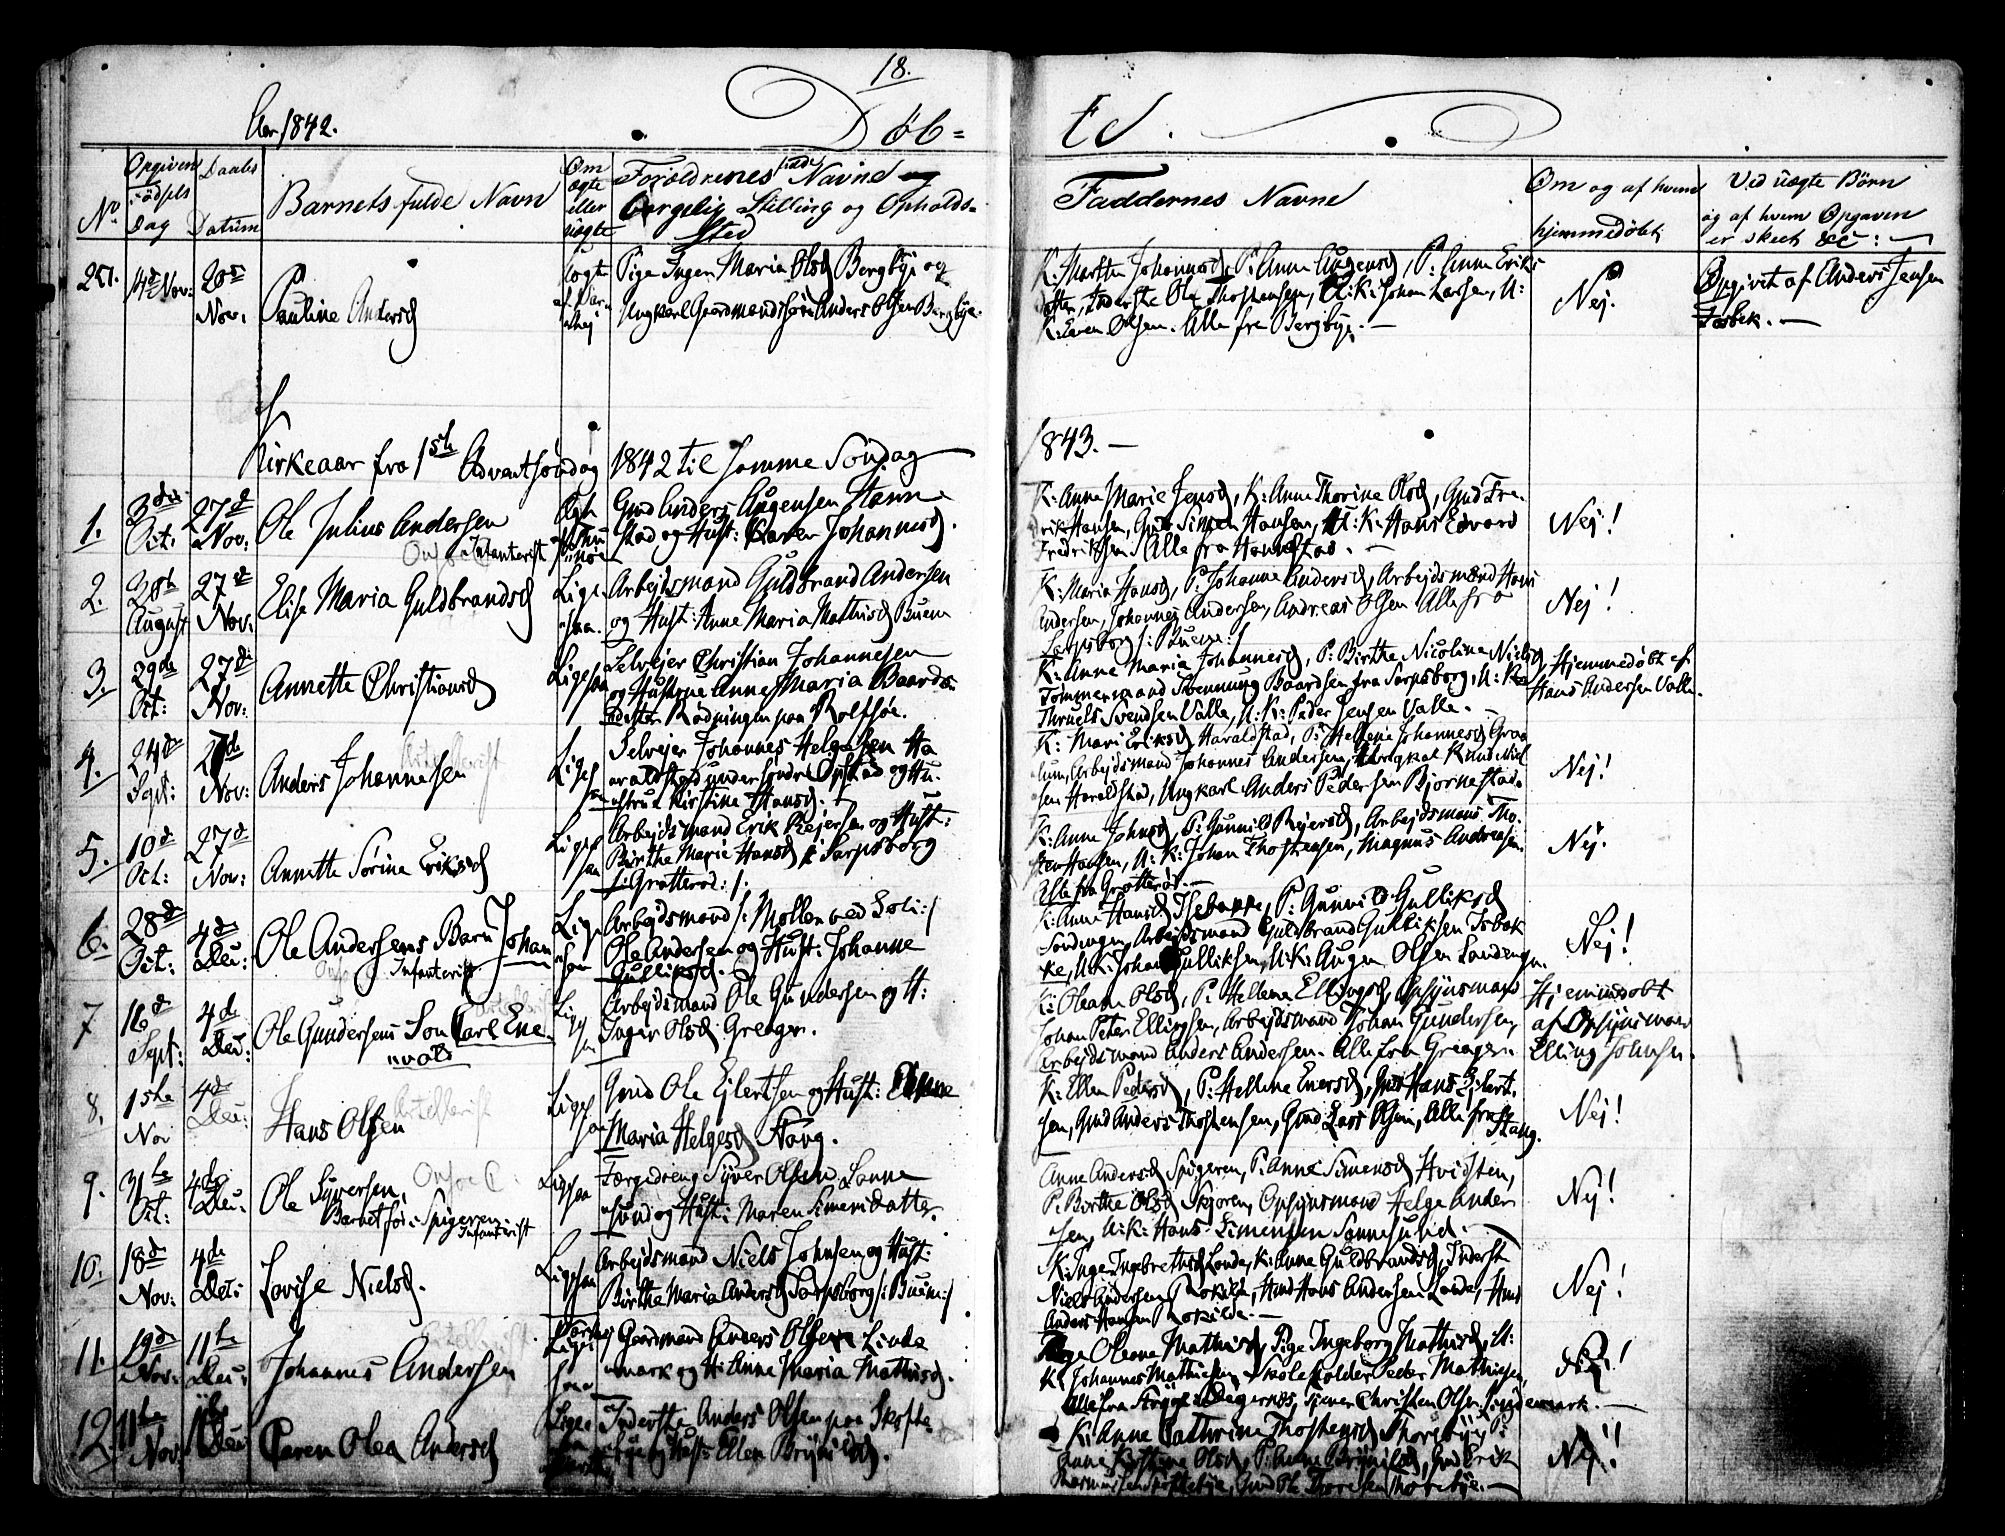 18.
Aar 1842.
Döb=
te.
No
Opgiven
Fødsels
Dag
Daabs
Datum
Barnets fulde Navn
Om
ægte
eller
uægte
Forældrenes fulde Navne og
borgelig Stilling og Opholds-
sted
Faddernes Navne
Om og af hvem
hjemmedøbt
Ved uægte Börn
og af hvem Opgaven
er skeet &c:
14de Nov:
20de
Nov:
Pauline Andersd
Pige Inger Maria Olsd Bergbye og
Ungkarl Gaardmandssøn Anders Olsen Bergbye.
K: Marthe Johannesd, P: Anne Augensd, P: Anne Eriks-
datter, Inderste Ole Thostensen, U:K: Johan Larsen, U:
K: Even Olsen. Alle fra Bergbye.
Nej.
Opgivet af Anders Jensen
Kirkeaar fra 1ste Advent søndag 1842 til samme Søndag
1843.
1.
3die
Oct:
27de
Nov:
Ole Julius Andersen
Infanterist
Gmd Anders Augensen Hanne-
stad og Hust: Karen Johannesd.
K: Anne Marie Jensd, K: Anne Thorine Olsd, Gmd Fre-
rik Hansen, Gmd Simen Hansen, U:K: Hans Edvard
Fredriksen. Alle fra Hannestad.
Nej!
2.
28de
August
27de
Nov:
Elise Maria Guldbrandsd
Lige-
saa.
Arbejdsmand Guldbrand Andersen
og Hust: Anne Maria Mathisd Buen
K: Maria Hansd, P: Johanne Andersd, Arbejdsmænd Hans
Andersen, Johannes Andersen, Andreas Olsen Alle fra
Sarpsborg /: Buene:/
Nej!
3.
29de
Oct:
27de
Nov:
Annette Christiansd
Ligesaa
Selvejer Christian Johannesen
og Hustrue Anne Maria Baards-
datter Rødningen paa Rolfsøe.
K: Anne Maria Johannesd, P: Birthe Nicoline Nielsd
Tømmermand Svennung Baardsen fra Sarpsborg, U:K:
Thruels Svendsen Valle, U:K: Peder Jensen Valle.
Hjemmedøbt af
Hans Andersen Valle.
4.
24de
Sept:
27de
Nov:
Anders Johannesen
Artellerist
Ligesaa
Selvejer Johannes Helgesen Ha-
raldstad under søndre Opstad og Hu-
strue Kirstine Hansd.
K: Mari Eriksd Haraldstad, P: Hellene Johannesd Graa-
lum, Arbejdsmand Johannes Andersen, Ungkarl Knud Niel-
sen Haraldstad, Ungkarl Anders Pedersen Bjørnestad.
Nej!
5.
10de
Oct:
27de
Nov:
Annette Sorine Eriksd
Ligesaa
Arbejdsmand Erik Rejersen og Hust:
Birthe Marie Hansd i Sarpsborg
/: Grotterød :/
K: Anne Johnsd, P: Gunnild Rejersd, Arbejdsmænd Tho-
sten Hansen, U:K: Johan Thostensen, Magnus Andreasen.
Alle fra Grotterød.
Nej.
6.
28de
Oct:
4de
Dec:
Ole Andersens Barn Johan
Infanterist
Lige-
saa
Arbejdsmand /: Møllen ved Soli:/
Ole Andersen og Hust: Johanne
Gulliksd.
K: Anne Hansd Isebakke, P: Gunnild Gulliksd
Sandengen, Arbejdsmand Guldbrand Gulliksen Isebak-
ke, U:K: Johan Gulliksen, U:K: Augen Olsen Sandengen.
Nej!
7
16de
Sept:
4de
Dec:
Ole Gundersens Søn Carl Ene-
vold
Ligesaa
Arbejdsmand Ole Gundersen og H:
Inger Olsd Greager.
K: Oleam Olsd, P: Hellene Ellingsd, Opsynsmand
Johan Peter Ellingsen, Arbejdsmand Johan Gundersen,
Arbejdsmand Anders Andersen. Alle fra Greager.
Hjemmedøbt
af Opsynsmand
Elling Johnsen.
8.
1ste
Nov
4de
Dec:
Hans Olsen
Artellerist
Ligesaa
Gmd Ole Ejlertsen og Hust: Anne
Maria Helgesd Stang.
K: Ellen Pedersd, P: Hellene Enersd, Gmd Hans Ejlert-
sen, Gmd Anders Thostensen, Gmd Lars Olsen, Alle fra Stang.
Nej!
9.
31te
Oct:
4de
Dec:
Ole Syversen,
Infanterist
Ligesaa
Færgedreng Syver Olsen Sanne-
sund og Hust: Maren Simensdatter.
Anne Andersd Spigeren, P: Anne Simensd Hvidsten,
P: Birthe Olsd Skjøren, Opsynsmand Helge Ander-
sen, U:K: Hans Simensen Sannesund.
Nej!
10.
18de
Nov:
4de
Dec:
Lovise Nielsd.
Ligesaa
Arbejdsmand Niels Johnsen og Hust:
Birthe Maria Andersd Sarpsborg /: Buen:/
K: Inge Ingebrethsd Lande, K: Anne Guldbrandsd, Inderst
Niels Andersen Rokilde, Hmd Hans Andersen Lande, Hmd
Anders Hansen Rokilde.
Nej!
11.
19de
Nov:
11te
Dec:
Johannes Andersen
Artellerist.
Gaardmand Anders Olsen Linde-
mark og H: Anne Maria Mathisd.
Pige Oleane Mathisd, Pige Ingeborg Mathisd, U:
K: Johannes Mathiesen, Skoleholder Peder Mathiesen,
Christen Olsen Lindemark.
Nej!
12.
11te
Nov:
11te
Dec:
Karen Olea Andersd
Inderste Anders Olsen paa Skofte-
bye og Hust: Ellen Brynildsd.
K: Anne Cathrine Thostensd Thorsbye, P:
Anne Kirstine Olsd, P: Anne Brynildsd, Gmd Erik
Rasmussen Skoftebye, Gmd Ole Thoresen Thorsbye.
Nej!